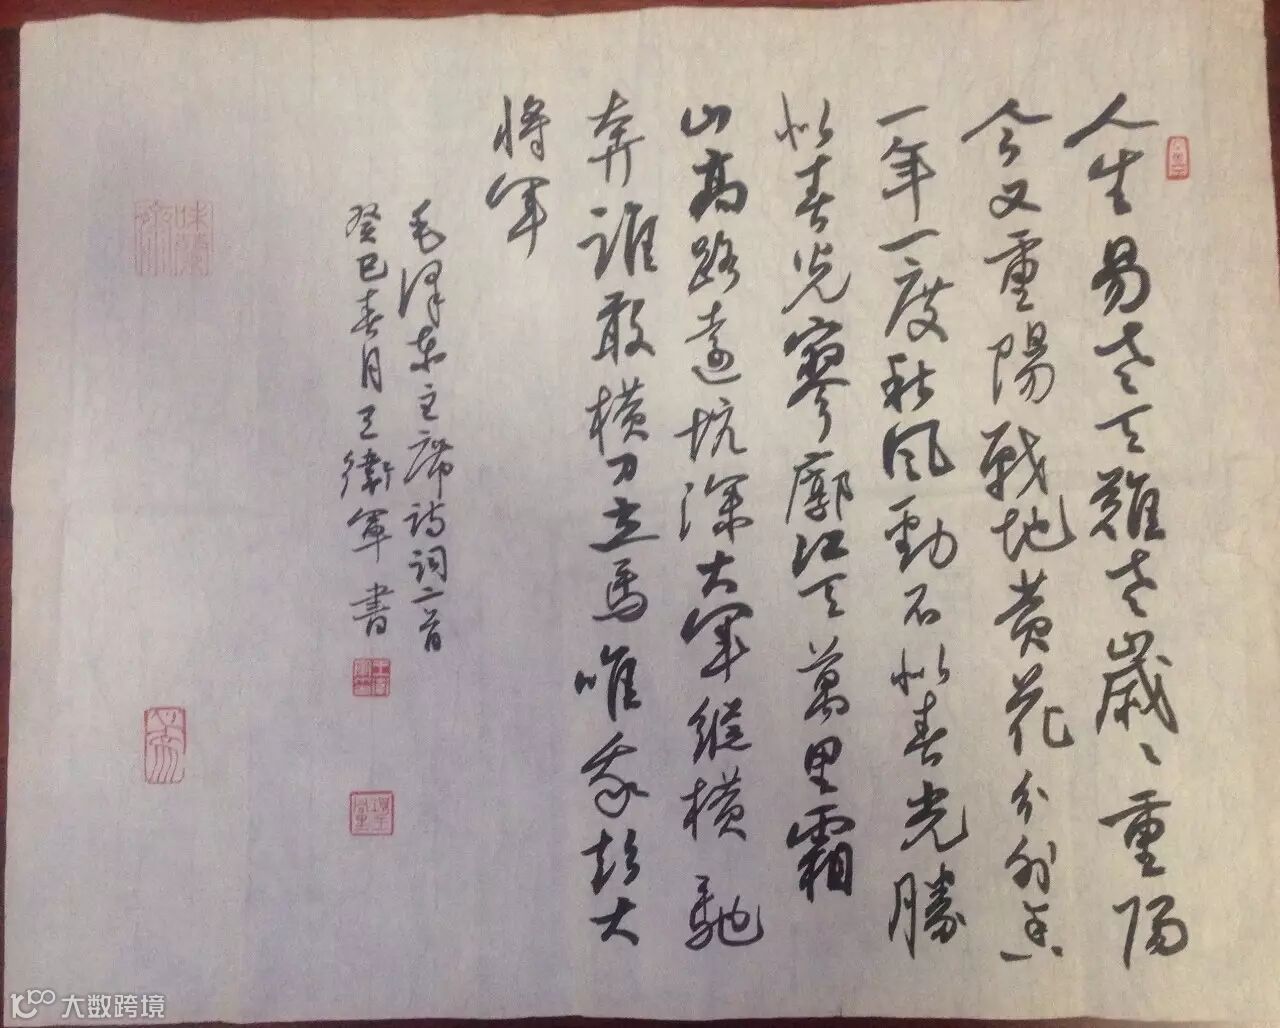 人生易老天難老歲々重陽
今又重陽戰地黄花分外香
一年一度秋風勁不似春光勝
似春光寥廓江天萬里霜
山高路遠坑深大軍縱橫馳
奔誰敢橫刀立馬唯我彭大
將軍
毛澤東主席詩詞二首
癸巳春月王衛軍書
大数跨境